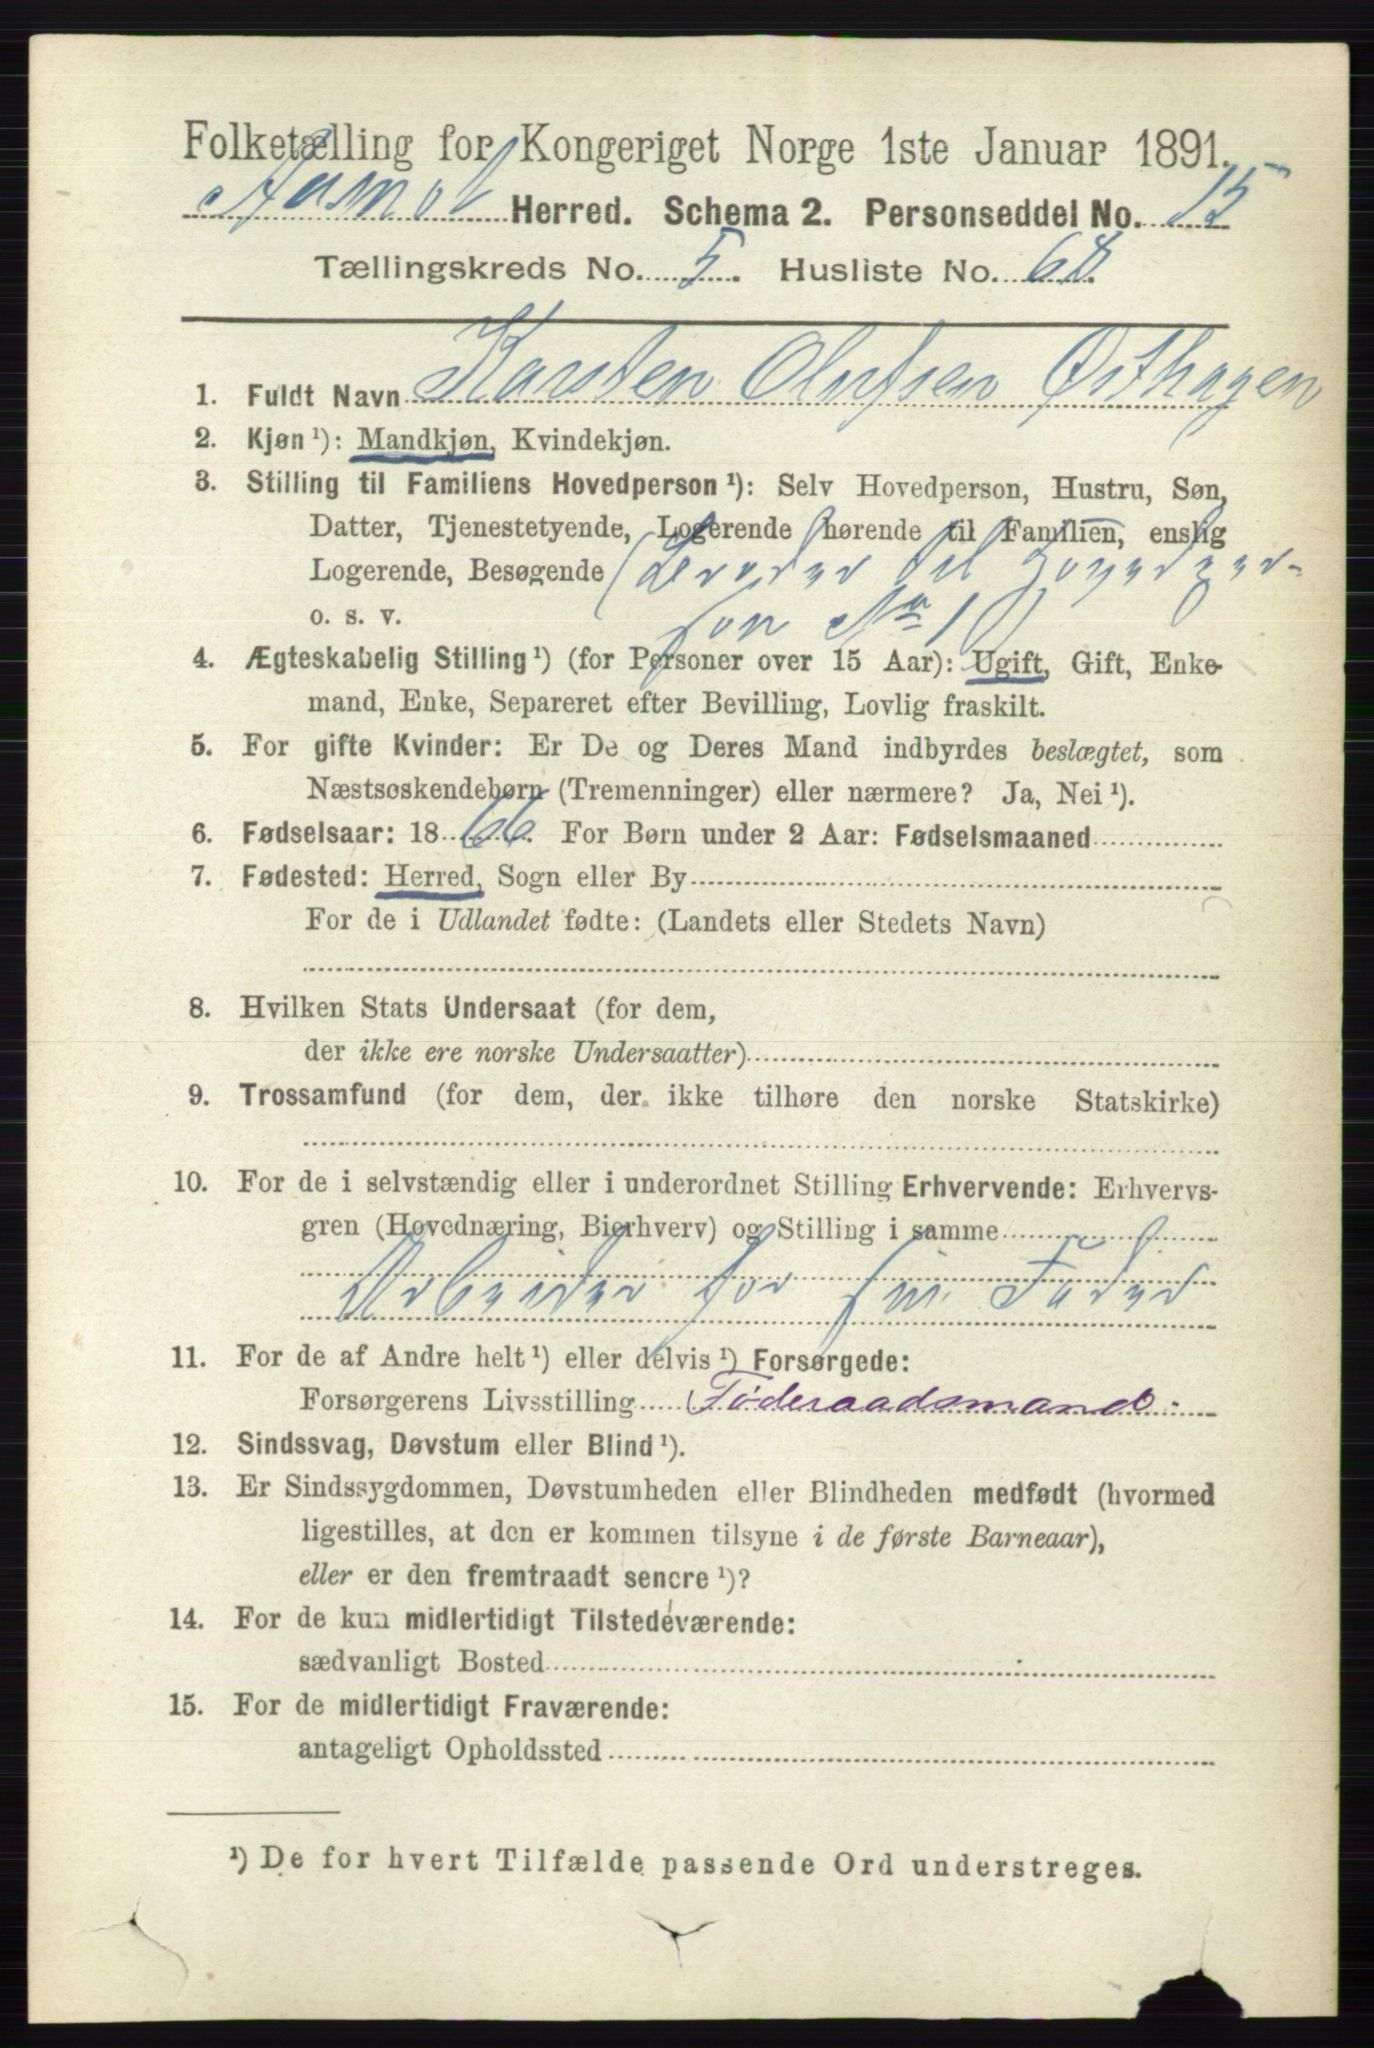 Folketælling for Kongeriget Norge 1ste Januar 1891.
Aasnæs Herred. Schema 2. Personseddel No. 15
Tællingskreds No. 5. Husliste No. 68.
1. Fuldt Navn Karsten Olufsen Østhagen
2. Kjøn ¹): Mandkjøn, Kvindekjøn.
3. Stilling til Familiens Hovedperson ¹): Selv Hovedperson, Hustru, Søn,
Datter, Tjenestetyende, Logerende hørende til Familien, enslig
Logerende, Besøgende (Broder til Hovedper-
o. s. v. son No 1)
4. Ægteskabelig Stilling ¹) (for Personer over 15 Aar): Ugift, Gift, Enke-
mand, Enke, Separeret efter Bevilling, Lovlig fraskilt.
5. For gifte Kvinder: Er De og Deres Mand indbyrdes beslægtet, som
Næstsøskendebørn (Tremenninger) eller nærmere? Ja, Nei ¹).
6. Fødselsaar: 1866. For Børn under 2 Aar: Fødselsmaaned
7. Fødested: Herred, Sogn eller By
For de i Udlandet fødte: (Landets eller Stedets Navn)
8. Hvilken Stats Undersaat (for dem,
der ikke ere norske Undersaatter)
9. Trossamfund (for dem, der ikke tilhøre den norske Statskirke)
10. For de i selvstændig eller i underordnet Stilling Erhvervende: Erhvervs-
gren (Hovednæring, Bierhverv) og Stilling i samme
Arbeider for sin Fader
11. For de af Andre helt ¹) eller delvis ¹) Forsørgede:
Forsørgerens Livsstilling Føderaadsmand.
12. Sindssvag, Døvstum eller Blind ¹).
13. Er Sindssygdommen, Døvstumheden eller Blindheden medfødt (hvormed
ligestilles, at den er kommen tilsyne i de første Barneaar),
eller er den fremtraadt senere ¹)?
14. For de kun midlertidigt Tilstedeværende:
sædvanligt Bosted
15. For de midlertidigt Fraværende:
antageligt Opholdssted
¹) De for hvert Tilfælde passende Ord understreges.